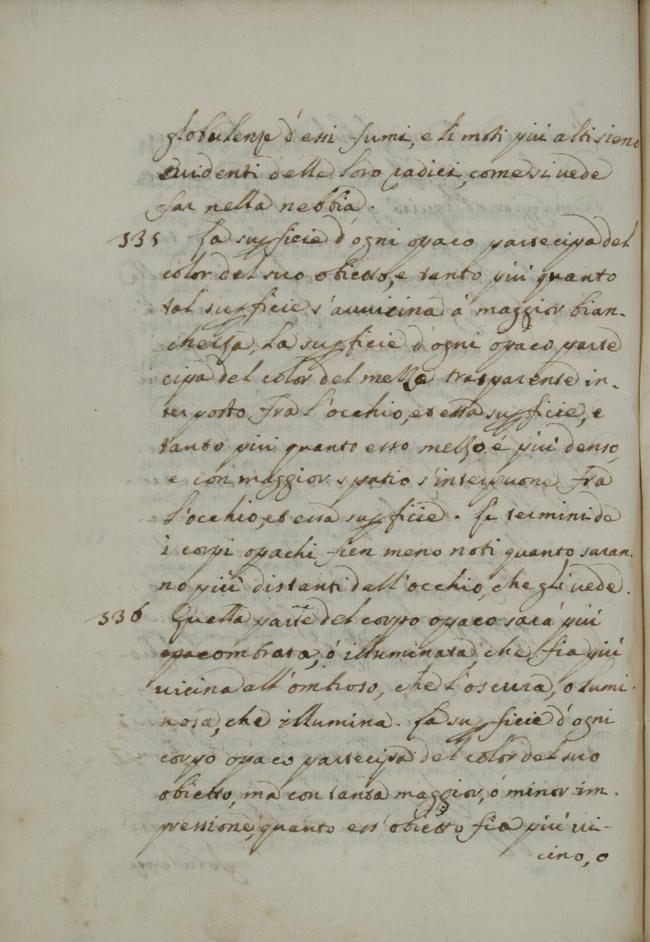 globulenze d'essi fumi, e li moti più alti sieno
evidenti delle loro radici, come si vede
far nella nebbia.
335 La supficie d'ogni opaco partecipa del
color del suo obietto, e tanto più quanto
tal supficie s'avvicina à maggior bian-
chezza, La supficie d'ogni opaco parte
cipa del color del mezzo trasparente in-
terposto Fra l'occhio, et essa supficie, e
tanto più quanto esso mezzo é più denso,
e con maggior spatio s'interpuone Fra
l'occhio, et essa supficie. Li termini de
i corpi opachi fien meno noti quanto saran-
no più distanti dall'occhio, che gli vede.
336 Quella parte del corpo opaco sará più
ombrata, ó illuminata che fia più
vicina all'ombroso, che l'oscura, o lumi-
nosa, che illumina. La supficie d'ogni
corpo opaco partecipa del color del suo
obietto, ma con tanta maggior, ó minor im-
pressione, quanto ess'obietto fia più vi-
cino, o